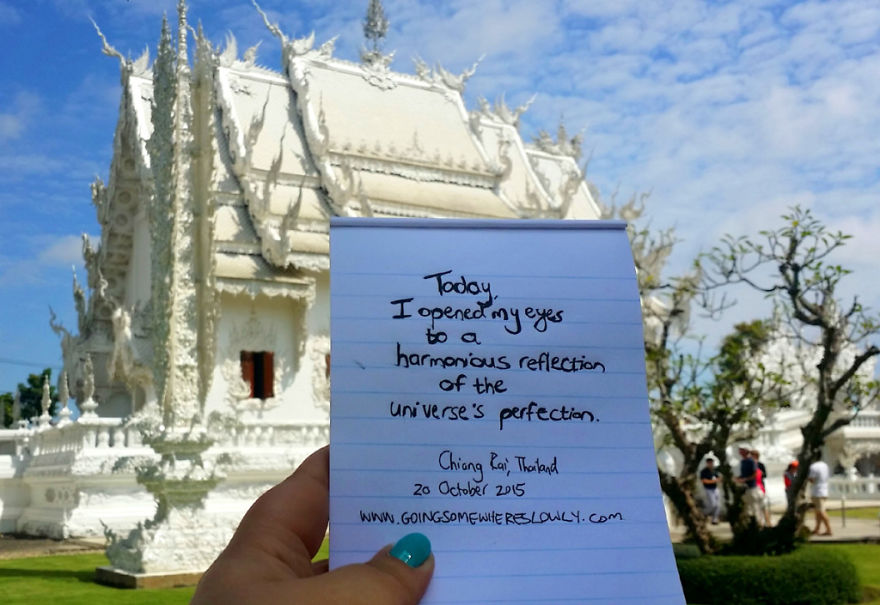 Today,
I opened my eyes
to a
harmonious reflection
of the
universe's perfection.
Chiang Rai, Thailand
20 October 2015
www.GOINGSOMEWHERESLOWLY.com